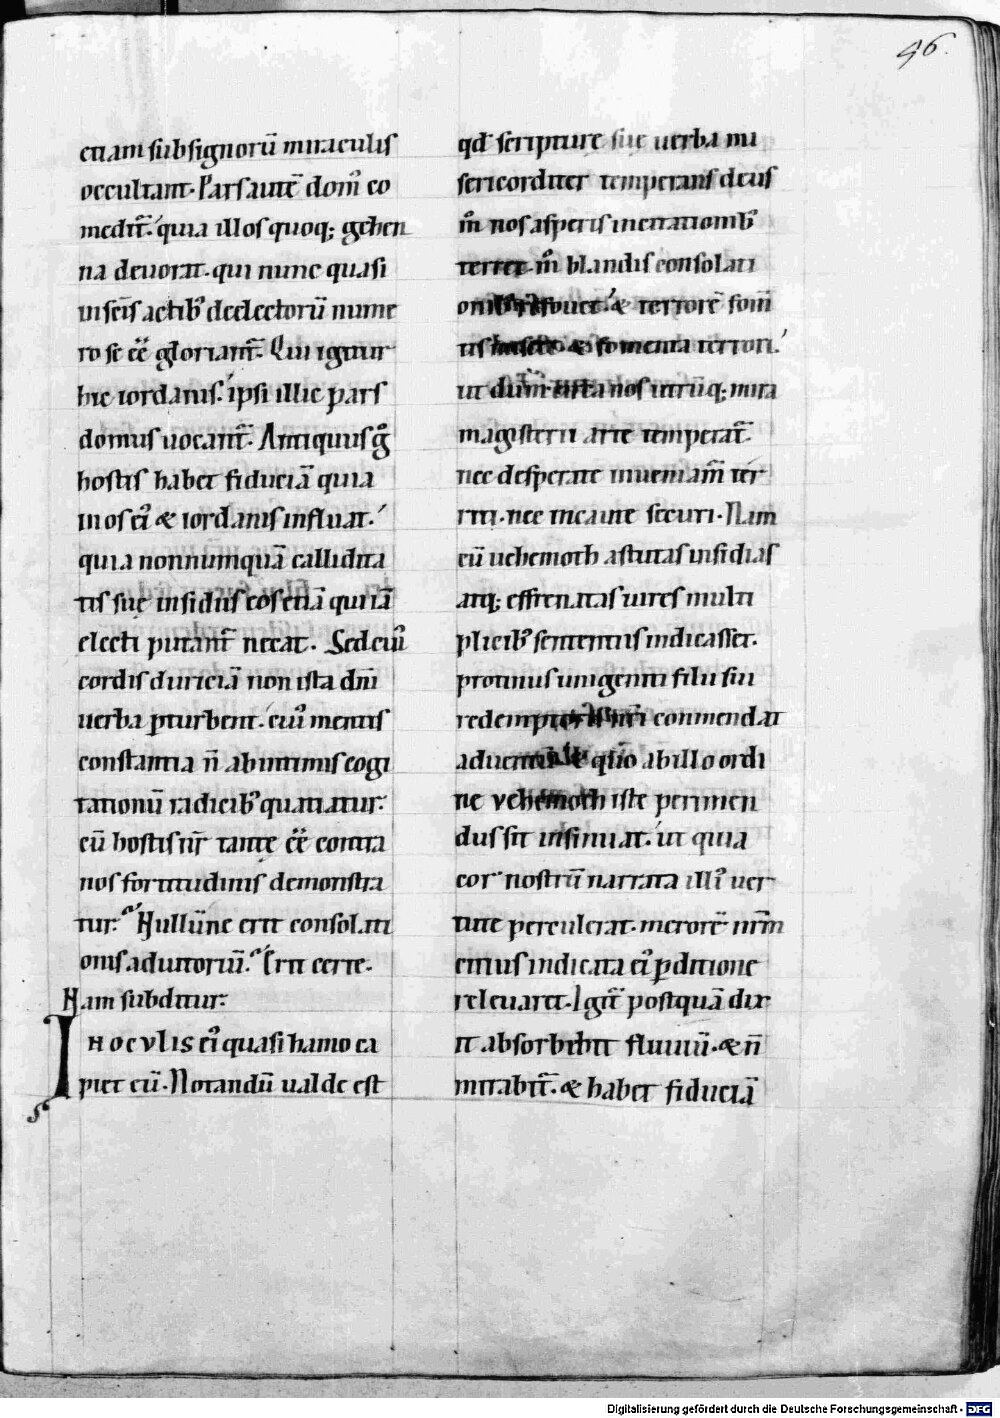 96.
etiam sub signorū miraculis
occultant. Pars autē dom᷒ co
medit᷑. quia illos quoq; gehen
na deuorat. qui nunc quasi
in scīs actib᷒ de electorū nume
ro se eē̄ gloriant᷑. Qui igitur
hic iordanis. ipsi illic pars
domus uocant᷑. Antiquus gͦ
hostis habet fiduciā quia
in os ei᷒ & iordanis influat.
quia nonnumquā callidita
tis suę insidiis eos etiā qui iā
electi putant᷑ necat. Sed cui᷒
cordis duriciā non ista dn̄i
uerba ꝑturbent. cui᷒ mentis
constantia n̄ ab intimis cogi
tationū radicib᷒ quatiatur.
cū hostis nr̄ tantę eē̄ contra
nos fortitudinis demonstra
tur. Nullū ne erit consolati
onis adiutoriū. Erit certe.
Nam subditur.
IN OCVLIS ei᷒ quasi hamo ca
piet eū. Notandū ualde est
qđ scripturę suę uerba mi
sericorditer temperans deus
m̊ nos asperis incitationib᷒
terret. m̊ blandis consolati
onib᷒ refouet. & terrorē fom̄
tis miscet. & fomenta terrori.
ut dum ista nos utrūq; mira
magisterii arte temperat᷑.
nec desperate inueniam᷒ ter
riti. nec incaute securi. Nam
cū uehemoth astutas insidias
atq; effrenatas uires multi
plicib᷒ sententiis indicasset.
protinus unigeniti filii sui
redemptoris nr̄i commendat
aduentū & q̄ͦ ab illo ordi
ne vehemoth iste perimen
dus sit insinuat. ut quia
cor nostrū narrata illi᷒ uer
tute perculerat. merorē nr̄m
citius indicata ei᷒ ꝑditione
releuaret. Igit᷑ postquā dix
it absorbebit fluuiū. & n̄
mirabit᷑. & habet fiduciā
Digitalisierung gefördert durch die Deutsche Forschungsgemeinschaft - DFG